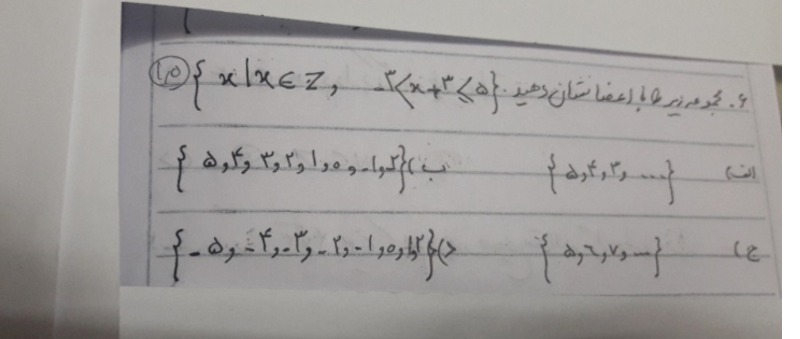 ۶. مجموعه زیر را با اعضا نشان دهید. {x | x ∈ Z, -۳<x+۳≤۵} (۱,۵)
الف) {۵,۴,۳, ...} ب) {۵,۴,۳,۲,۱,۰,-۱,۲}
ج) {۵,۶,۷, ...} د) {-۵,-۴,-۳,-۲,-۱,۰,۱,۲}